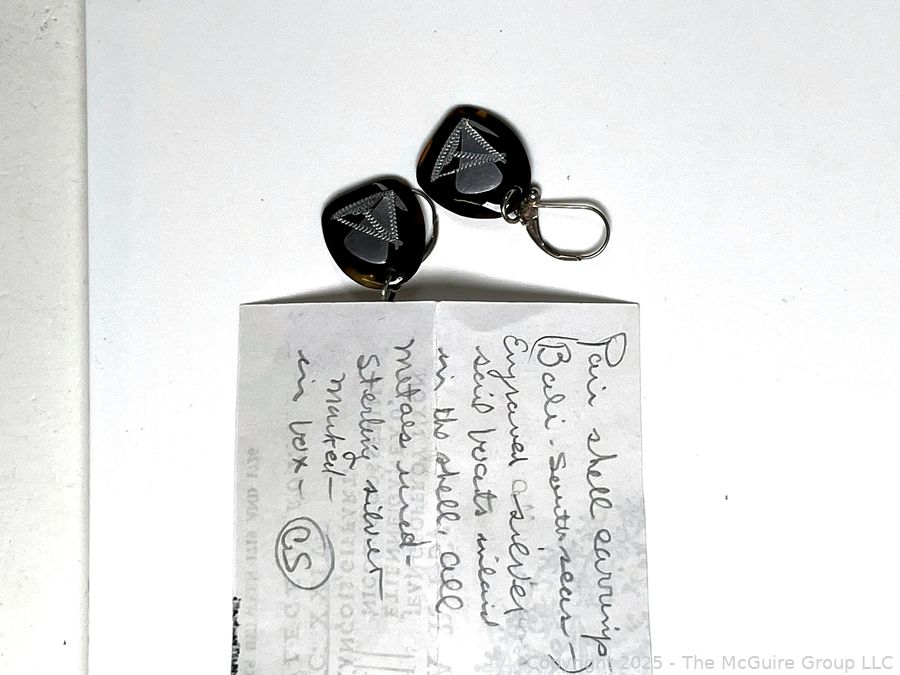 Pair shell earrings
(Bali - South seas -)
Engraved silver
sail boats inlaid
in the shell, all
metals used -
Sterling silver
marked -
in box - CS
Copyright 2025 - The McGuire Group LLC